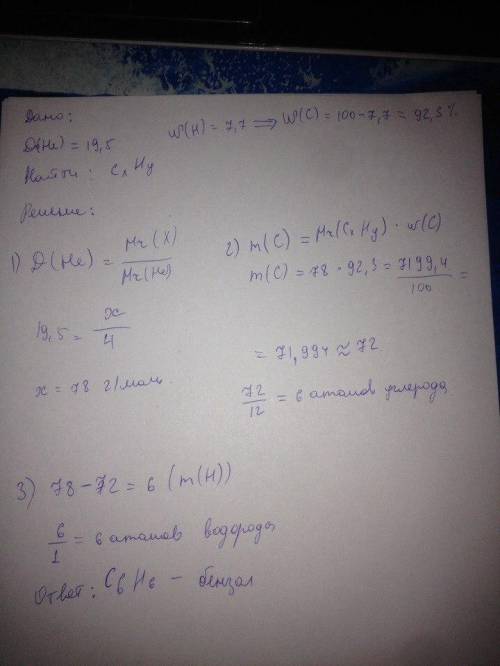 Дано:
w(H) = 7,7 ⟹ w(C) = 100-7,7 = 92,3%
D(He) = 19,5
Найти: CxHy
Решение:
1) D(He) = Mr(X) / Mr(He)
19,5 = x / 4
x = 78 г/моль
2) m(C) = Mr(CxHy) · w(C)
m(C) = 78 · 92,3 = 7199,4 / 100 =
= 71,994 ≈ 72
72 / 12 = 6 атомов углерода
3) 78 - 72 = 6 (m(H))
6 / 1 = 6 атомов водорода
Ответ: C6H6 - бензол